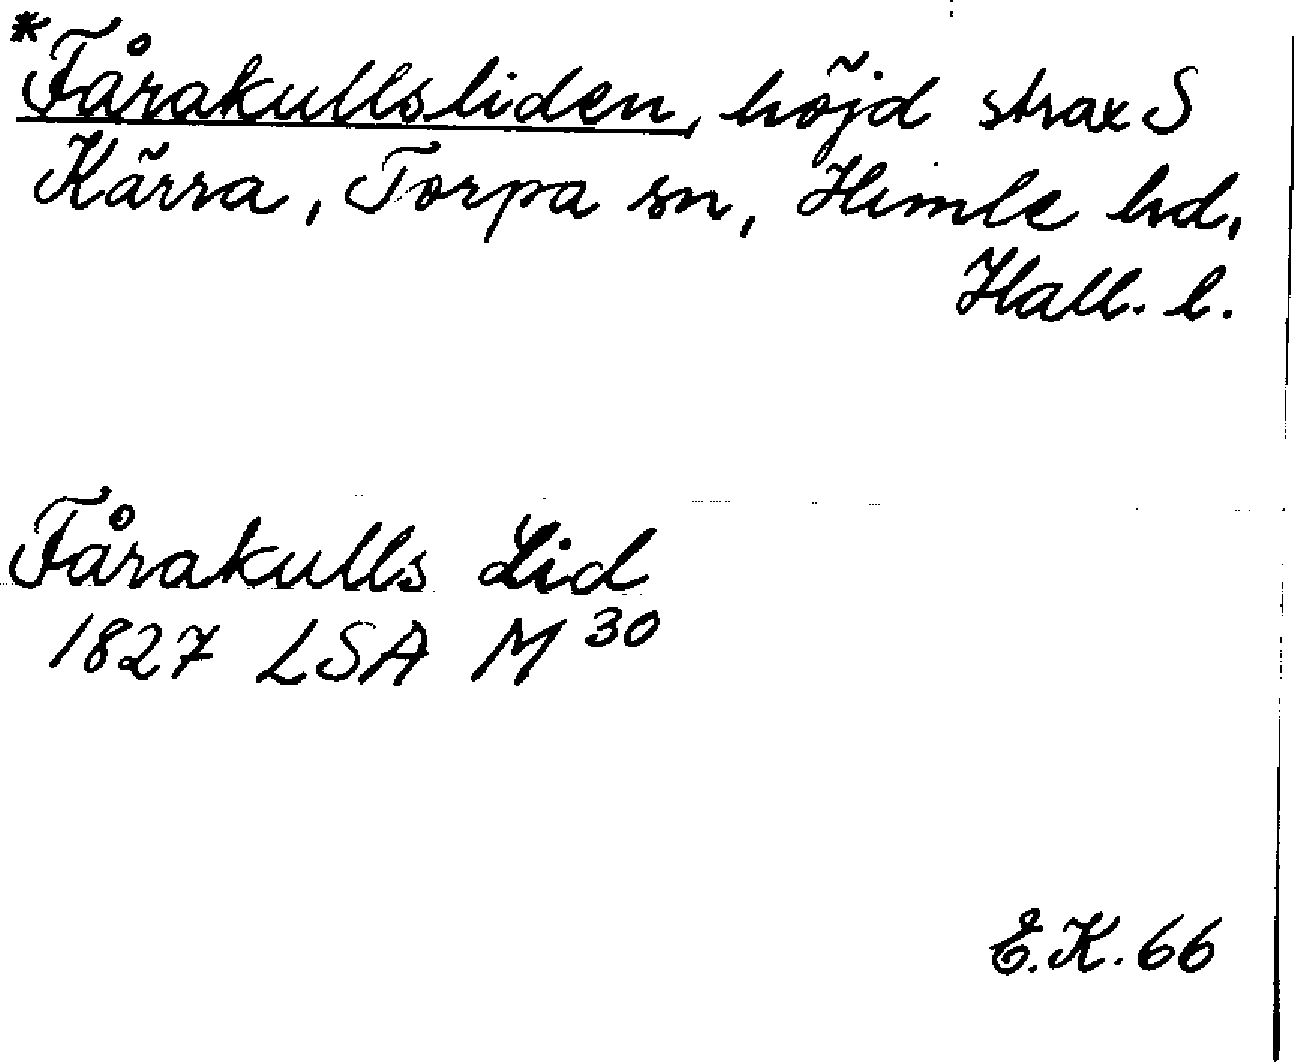 *Fårakullsliden, höjd strax S
Kärra, Torpa sn, Himle hd,
Hall. l.
Fårakulls Lid
1827 LSA M 30
E.K. 66